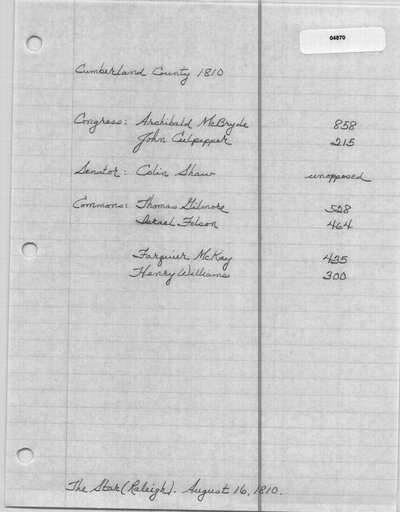 04870
Cumberland County 1810
Congress: Archibald McBryde 858
John Culpepper 215
Senator: Colin Shaw unopposed
Commons: Thomas Gilmore 528
Israel Folson 464
Farquier McKay 435
Henry Williams 300
The Star (Raleigh). August 16, 1810.